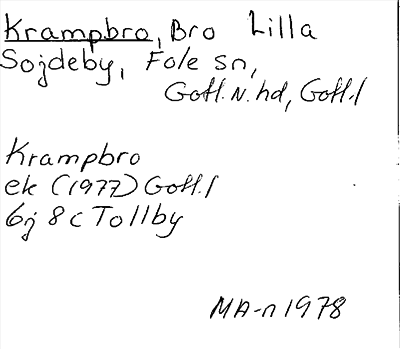 Krampbro, Bro Lilla
Sojdeby, Fole sn,
Gotl. N. hd, Gotl. l
Krampbro
ek (1977) Gotl. l
6j 8 c Tollby
MA-n 1978